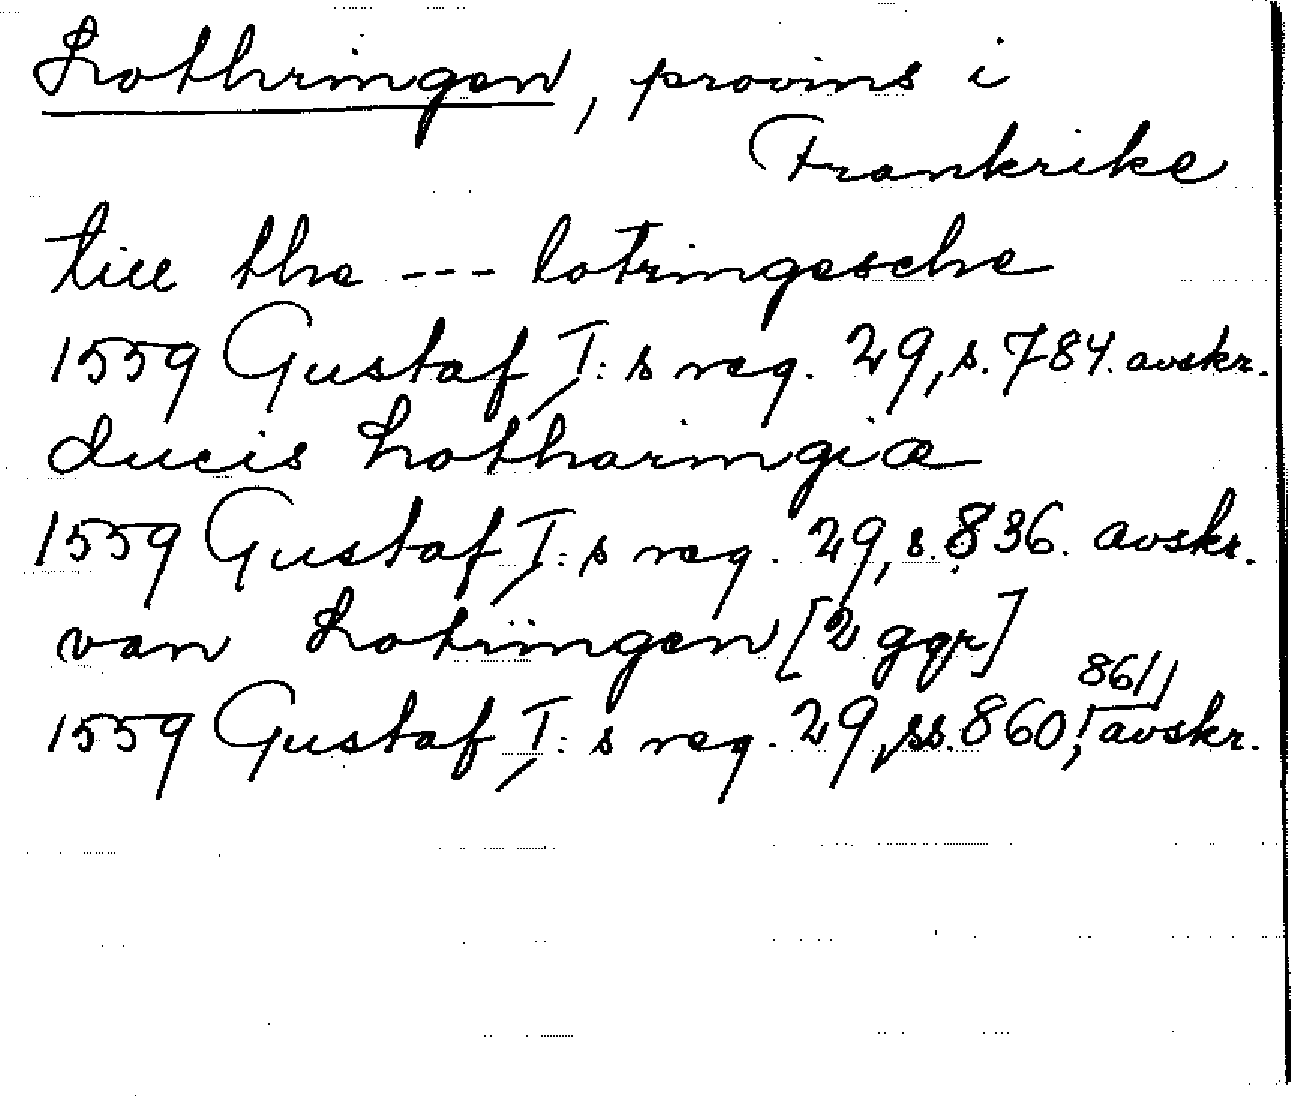 Lothringen, provins i
Frankrike
till the --- lotringesche
1559 Gustaf I:s reg. 29, s. 784. avskr.
ducis Lotharingiæ
1559 Gustaf I:s reg. 29, s. 836. avskr.
van Lotringen [2 ggr]
1559 Gustaf I:s reg. 29, ss. 860, 861, avskr.